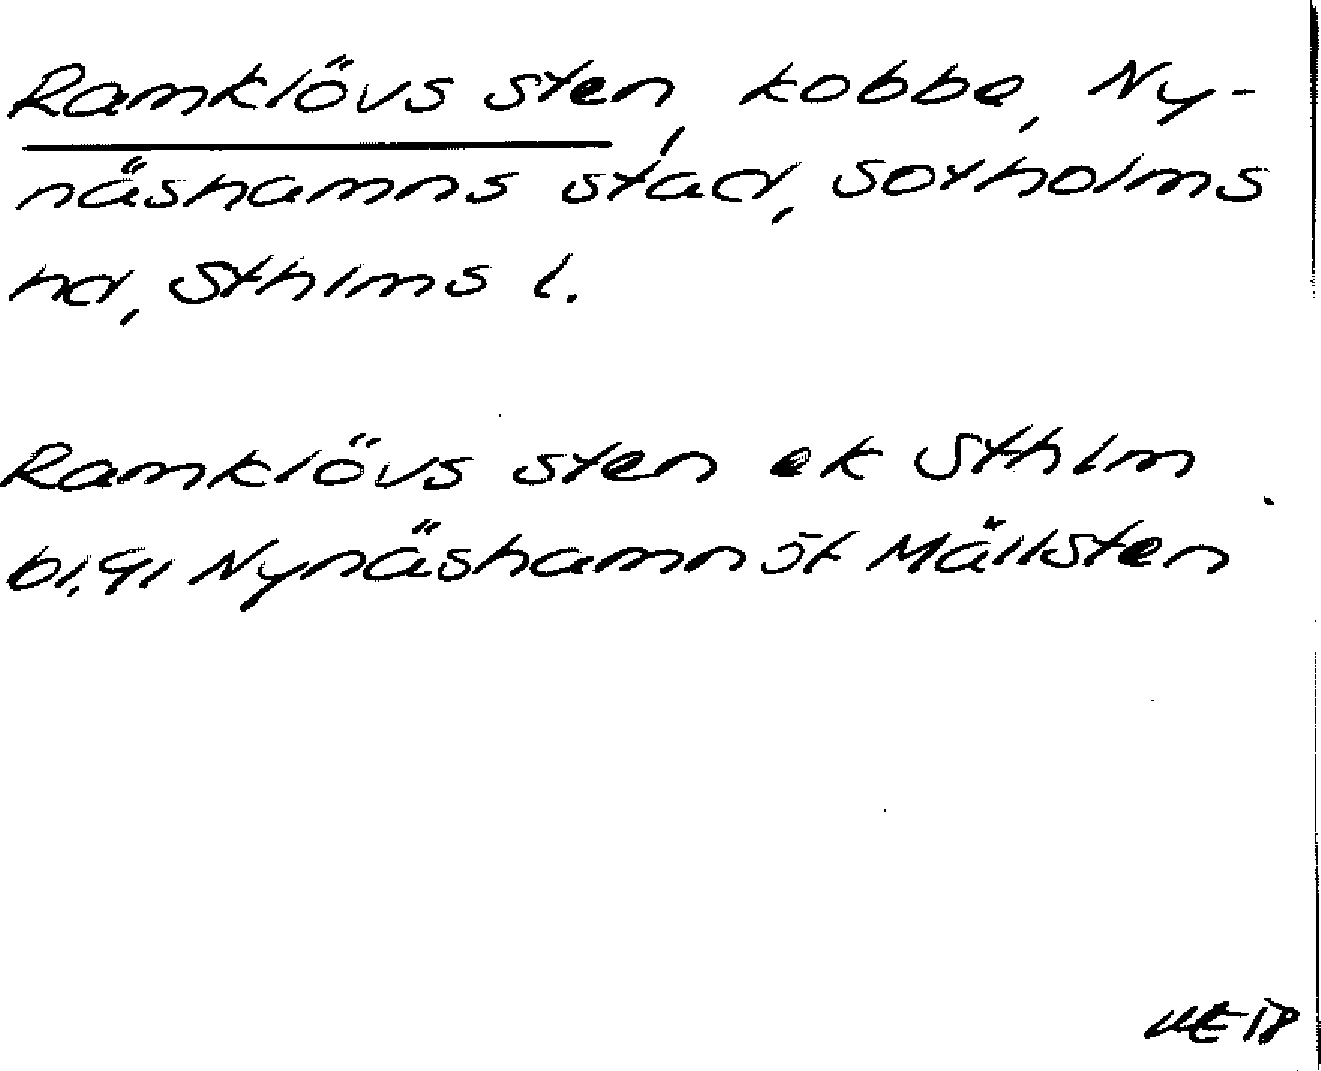 Ramklövs sten, kobbe, Ny-
näshamns stad, Sotholms
hd, Sthlms l.
Ramklövs sten ek Sthlm
bl. 91 Nynäshamn öt Mällsten